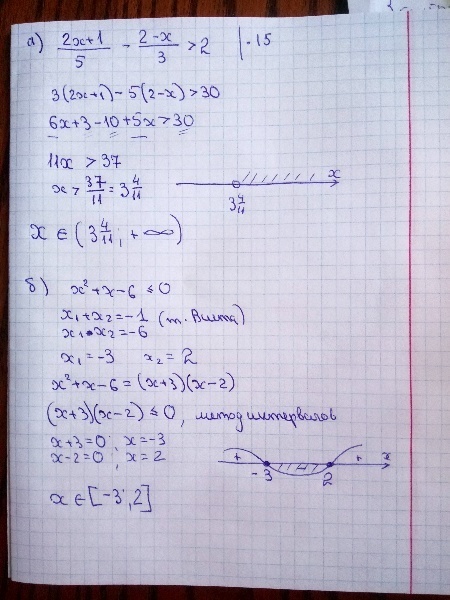 а) (2x+1)/5 - (2-x)/3 > 2 | · 15
3(2x+1) - 5(2-x) > 30
6x+3-10+5x > 30
11x > 37
x > 37/11 = 3 4/11
x
3 4/11
x ∈ (3 4/11; +∞)
б) x²+x-6 ≤ 0
x₁+x₂=-1 (т. Виета)
x₁•x₂=-6
x₁=-3 x₂=2
x²+x-6=(x+3)(x-2)
(x+3)(x-2) ≤ 0, метод интервалов
x+3=0; x=-3
x-2=0; x=2
+ - + x
-3 2
x ∈ [-3; 2]